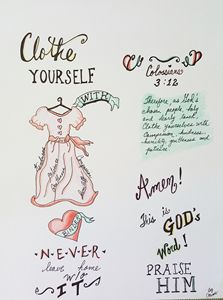 Clothe
YOURSELF
WITH
LOVE
NEVER
leave home
W/O
IT
Colossians
3:12
Therefore, as God's
chosen people, holy
and dearly loved,
Clothe yourselves with
Compassion, kindness,
humility, gentleness and
patience.
Amen!
This is
GOD'S
Word!
PRAISE
HIM